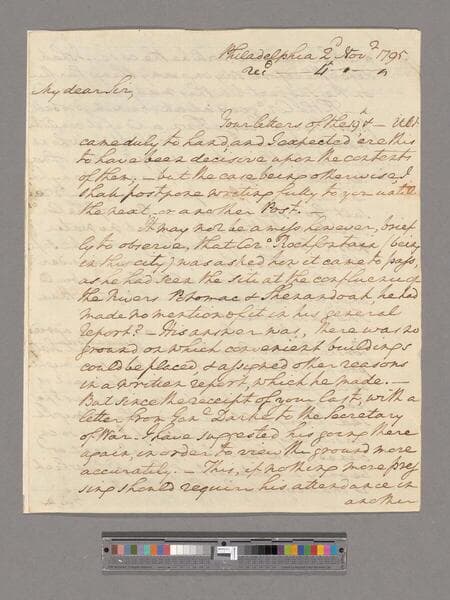 Philadelphia 2d Novr 1795.
recd — 4th
My dear Sir,
Your letters of the — Ult
came duly to hand and I expected 'ere this
to have been decisive upon the contents
of them, — but the case being otherwise I
shall postpone writing fully to you until
the next, or another Post. —
It may not be amiss however, brief
ly to observe, that Colo Rochfontain (being
in this city) was asked how it came to pass,
as he had seen the site at the confluence of
the Rivers Potomac & Shenandoah, he had
made no mention of it in his general
report? — His answer was, there was no
ground on which convenient buildings
could be placed & assigned other reasons
in a written report, which he made. —
But since the receipt of your last, with a
letter from Genl Darke to the Secretary
of War. I have suggested his going there
again, in order to view the ground more
accurately. — This, if nothing more pres
sing should require his attendance in
another